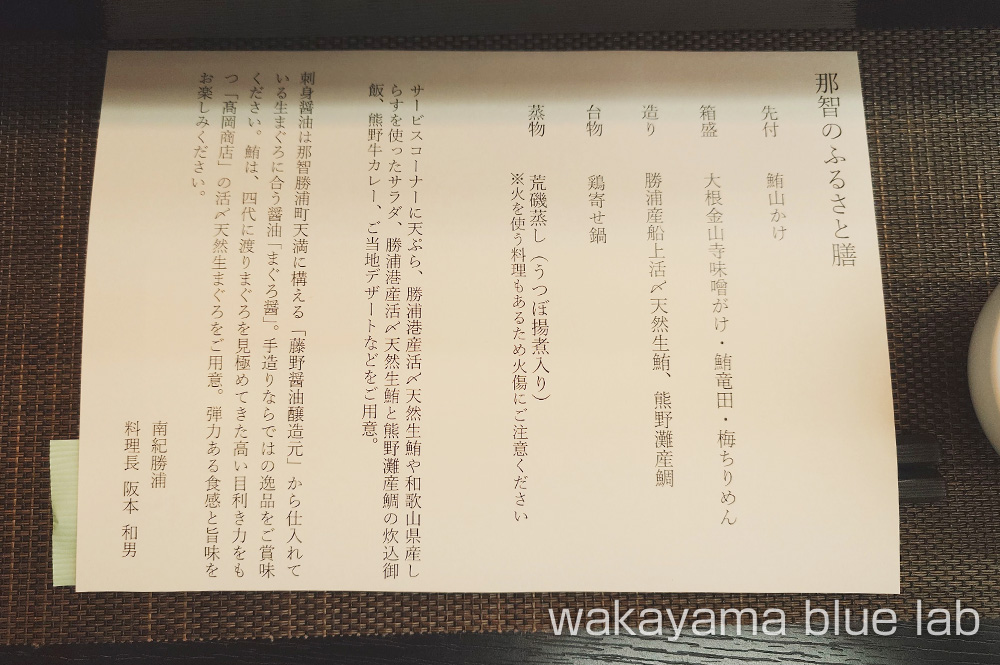 那智のふるさと膳
先付　鮪山かけ
箱盛　大根金山寺味噌がけ・鮪竜田・梅ちりめん
造り　勝浦産船上活〆天然生鮪、熊野灘産鯛
台物　鶏寄せ鍋
蒸物　荒磯蒸し（うつぼ揚煮入り）
※火を使う料理もあるため火傷にご注意ください
サービスコーナーに天ぷら、勝浦港産活〆天然生鮪や和歌山県産し
らすを使ったサラダ、勝浦港産活〆天然生鮪と熊野灘産鯛の炊込御
飯、熊野牛カレー、ご当地デザートなどをご用意。
刺身醤油は那智勝浦町天満に構える「藤野醤油醸造元」から仕入れて
いる生まぐろに合う醤油「まぐろ醤」。手造りならではの逸品をご賞味
ください。鮪は、四代に渡りまぐろを見極めてきた高い目利き力をも
つ「髙岡商店」の活〆天然生まぐろをご用意。弾力ある食感と旨味を
お楽しみください。
南紀勝浦
料理長　阪本　和男
wakayama blue lab